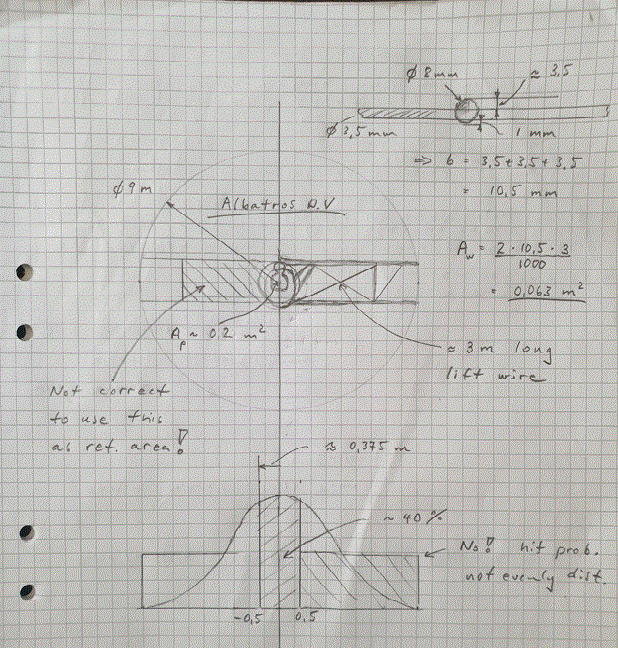 ϕ 8 mm
≈ 3,5
ϕ 3,5 mm
1 mm
⇒ b = 3,5 + 3,5 + 3,5
= 10,5 mm
ϕ 9 m
Albatros D.V
A_w = 2 · 10,5 · 3 / 1000
= 0,063 m²
A_p ~ 0,2 m²
≈ 3 m long
lift wire
Not correct
to use this
as ref. area!
≈ 0,375 m
~ 40 %
No! hit prob.
not evenly dist.
-0,5 0,5